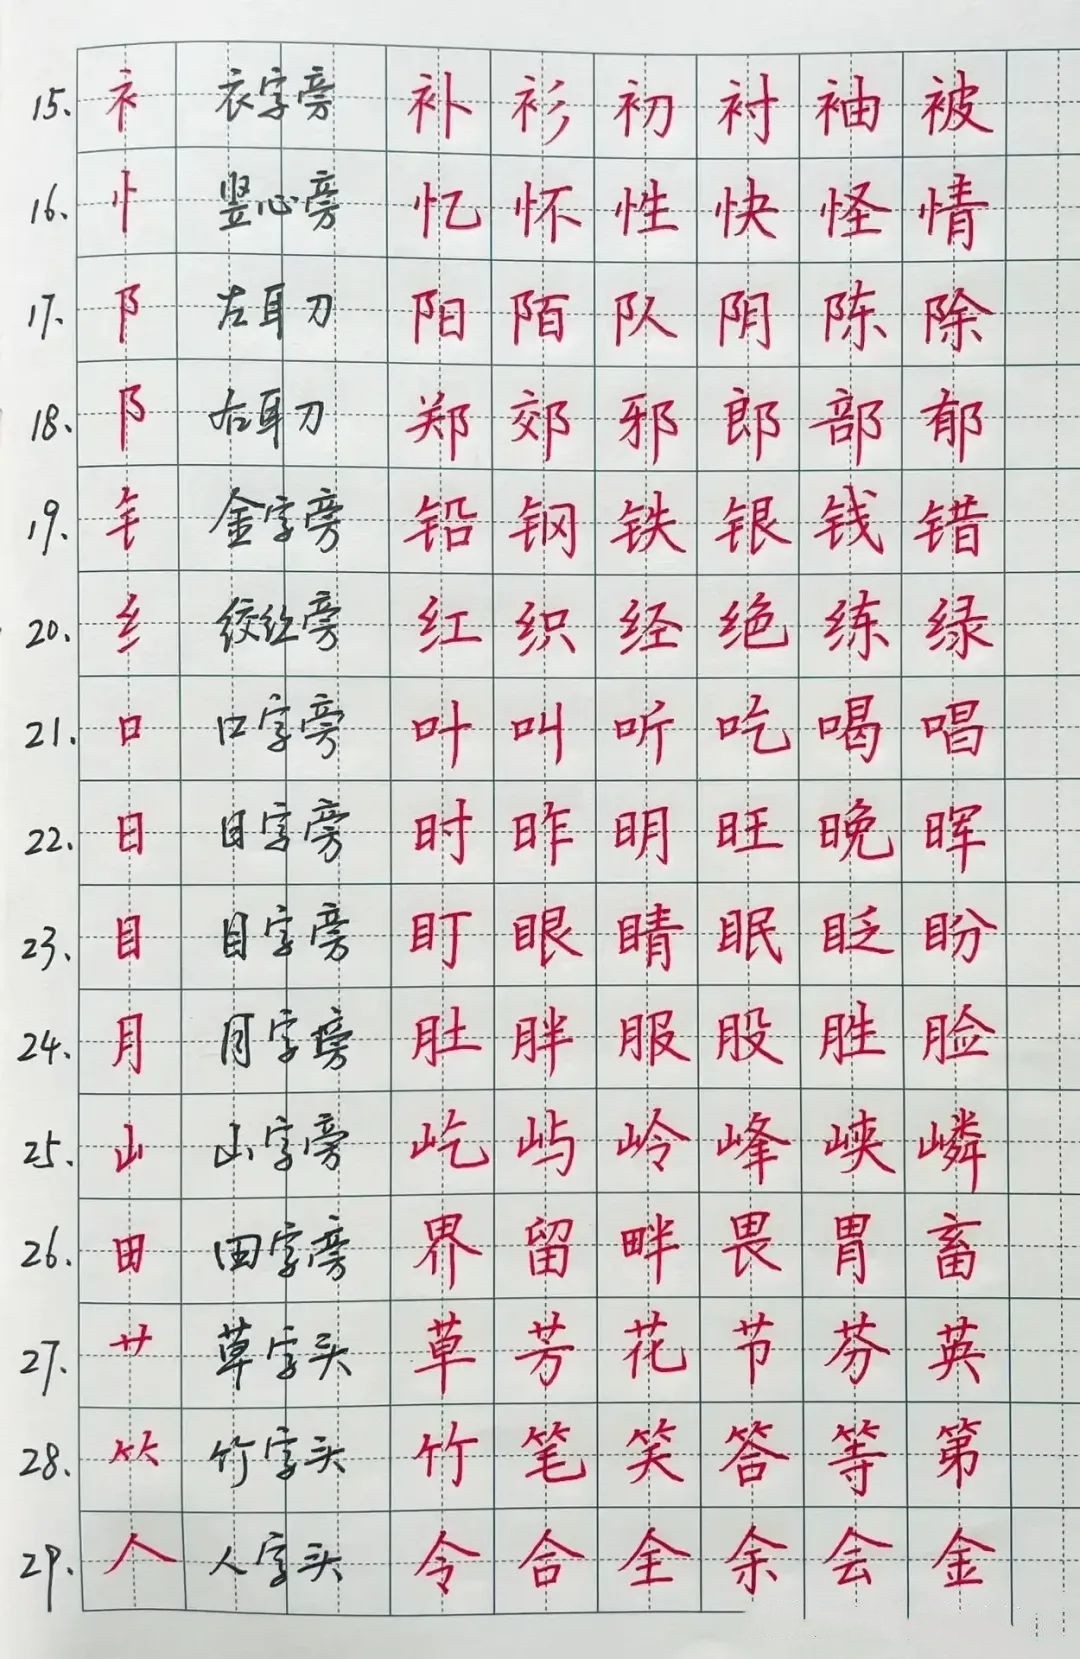 15. 衤 衣字旁 补 衫 初 衬 袖 被
16. 忄 竖心旁 忆 怀 性 快 怪 情
17. 阝 左耳刀 阳 陌 队 阴 陈 除
18. 阝 右耳刀 郑 郊 邪 郎 部 郁
19. 钅 金字旁 铅 钢 铁 银 钱 错
20. 纟 绞丝旁 红 织 经 绝 练 绿
21. 口 口字旁 叶 叫 听 吃 喝 唱
22. 日 日字旁 时 昨 明 旺 晚 晖
23. 目 目字旁 盯 眼 睛 眠 眨 盼
24. 月 月字旁 肚 胖 服 股 胜 脸
25. 山 山字旁 屹 屿 岭 峰 峡 嶙
26. 田 田字旁 界 留 畔 畏 胃 畜
27. 艹 草字头 草 芳 花 节 芬 英
28. ⺮ 竹字头 竹 笔 笑 答 等 第
29. 人 人字头 令 合 全 余 会 金